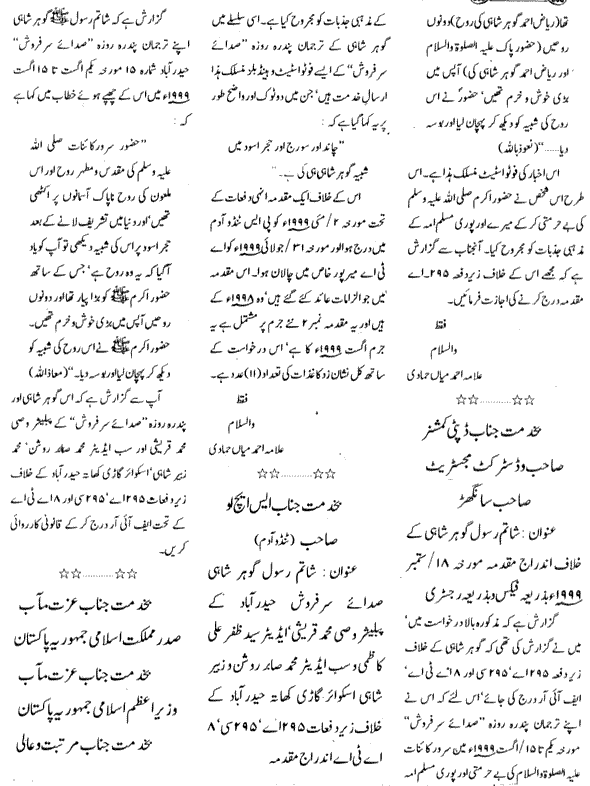 تھا (ریاض احمد گوہر شاہی کی روح) دونوں
روحیں (حضور پاک علیہ الصلوۃ والسلام
اور ریاض احمد گوہر شاہی کی) آپس میں
بڑی خوش و خرم تھیں' حضورؐ نے اس
روح کی شبیہ کو دیکھ کر پہچان لیا اور بوسہ
دیا......‘‘ (نعوذ باللہ)
اس اخبار کی فوٹو اسٹیٹ منسلک ہذا ہے۔ اس
طرح اس شخص نے حضور اکرم صلی اللہ علیہ وسلم
کی بے حرمتی کر کے میرے اور پوری مسلم امہ کے
مذہبی جذبات کو مجروح کیا۔ آنجناب سے گزارش
ہے کہ مجھے اس کے خلاف زیر دفعہ ۲۹۵۔اے
مقدمہ درج کرنے کی اجازت فرمائیں۔
فقط
والسلام
علامہ احمد میاں حمادی
☆☆............☆☆
بخدمت جناب ڈپٹی کمشنر
صاحب وڈسٹرکٹ مجسٹریٹ
صاحب سانگھڑ
عنوان : شاتم رسول گوہر شاہی کے
خلاف اندراج مقدمہ مورخہ ۱۸/ستمبر
۱۹۹۹ء بذریعہ فیکس و بذریعہ رجسٹری
گزارش ہے کہ مذکورہ بالا درخواست میں'
میں نے گزارش کی تھی کہ گوہر شاہی کے خلاف
زیر دفعہ ۲۹۵اے' ۲۹۵سی اور ۸ اے ٹی اے'
ایف آئی آر درج کی جائے' اس لئے کہ اس نے
اپنے ترجمان پندرہ روزہ ’’صدائے سرفروش‘‘
مورخہ یکم تا ۱۵/اگست ۱۹۹۹ء میں سرور کائنات
علیہ الصلوۃ والسلام کی بے حرمتی اور پوری مسلم امہ
کے مذہبی جذبات کو مجروح کیا ہے۔ اسی سلسلے میں
گوہر شاہی کے ترجمان پندرہ روزہ ’’صدائے
سرفروش‘‘ کے ایسے فوٹو اسٹیٹ وہینڈبلز منسلک ہذا
ارسال خدمت ہیں' جن میں دو ٹوک اور واضح طور
پر یہ کہا گیا ہے کہ :
’’چاند اور سورج اور حجر اسود میں
شبیہ گوہر شاہی ہی کی ہے۔‘‘
اس کے خلاف ایک مقدمہ انہی دفعات کے
تحت مورخہ ۲/ مئی ۱۹۹۹ء کو پی ایس ٹنڈو آدم
میں درج ہوا اور مورخہ ۳۱/ جولائی ۱۹۹۹ء کو اے
ٹی اے میر پور خاص میں چالان ہوا۔ اس مقدمہ
میں جو الزامات عائد کئے گئے ہیں' وہ ۱۹۹۸ء کے
ہیں اور یہ مقدمہ نمبر ۲ نئے جرم پر مشتمل ہے یہ
جرم اگست ۱۹۹۹ء کا ہے' اس درخواست کے
ساتھ کل نشان زد کاغذات کی تعداد (۱۱) عدد ہے۔
فقط
والسلام
علامہ احمد میاں حمادی
☆☆............☆☆
بخدمت جناب ایس ایچ او
صاحب (ٹنڈو آدم)
عنوان : شاتم رسول گوہر شاہی
صدائے سرفروش حیدرآباد کے
پبلیشر وصی محمد قریشی' ایڈیٹر سید ظفر علی
کاظمی و سب ایڈیٹر محمد صابر روشن و زبیر
شاہی اسکوائر گاڑی کھاتہ حیدرآباد کے
خلاف زیر دفعات ۲۹۵اے' ۲۹۵سی' ۸
اے ٹی اے اندراج مقدمہ
گزارش ہے کہ شاتم رسول ﷺ گوہر شاہی
اپنے ترجمان پندرہ روزہ ’’صدائے سرفروش‘‘
حیدرآباد شمارہ ۱۵ مورخہ یکم اگست تا ۱۵ اگست
۱۹۹۹ء میں اس کے چھپے ہوئے خطاب میں کہا ہے
کہ :
’’حضور سرور کائنات صلی اللہ
علیہ وسلم کی مقدس و مطہر روح اور اس
ملعون کی روح ناپاک آسمانوں پر اکٹھی
تھیں' اور دنیا میں تشریف لانے کے بعد
حجر اسود پر اس کی شبیہ دیکھی تو آپ کو یاد
آگیا کہ یہ وہ روح ہے' جس کے ساتھ
حضور اکرم ﷺ کو بڑا پیار تھا اور دونوں
روحیں آپس میں بڑی خوش و خرم تھیں۔
حضور اکرم ﷺ نے اس روح کی شبیہ کو
دیکھ کر پہچان لیا اور بوسہ دیا۔‘‘ (معاذ اللہ)
آپ سے گزارش ہے کہ اس گوہر شاہی اور
پندرہ روزہ ’’صدائے سرفروش‘‘ کے پبلیشر وصی
محمد قریشی اور سب ایڈیٹر محمد صابر روشن' محمد
زبیر شاہی' اسکوائر گاڑی کھاتہ حیدرآباد کے خلاف
زیر دفعات ۲۹۵اے' ۲۹۵سی اور ۸ اے ٹی اے
کے تحت ایف آئی آر درج کر کے قانونی کارروائی
کریں۔
☆☆............☆☆
بخدمت جناب عزت مآب
صدر مملکت اسلامی جمہوریہ پاکستان
بخدمت جناب عزت مآب
وزیر اعظم اسلامی جمہوریہ پاکستان
بخدمت جناب مرتبت وعالی